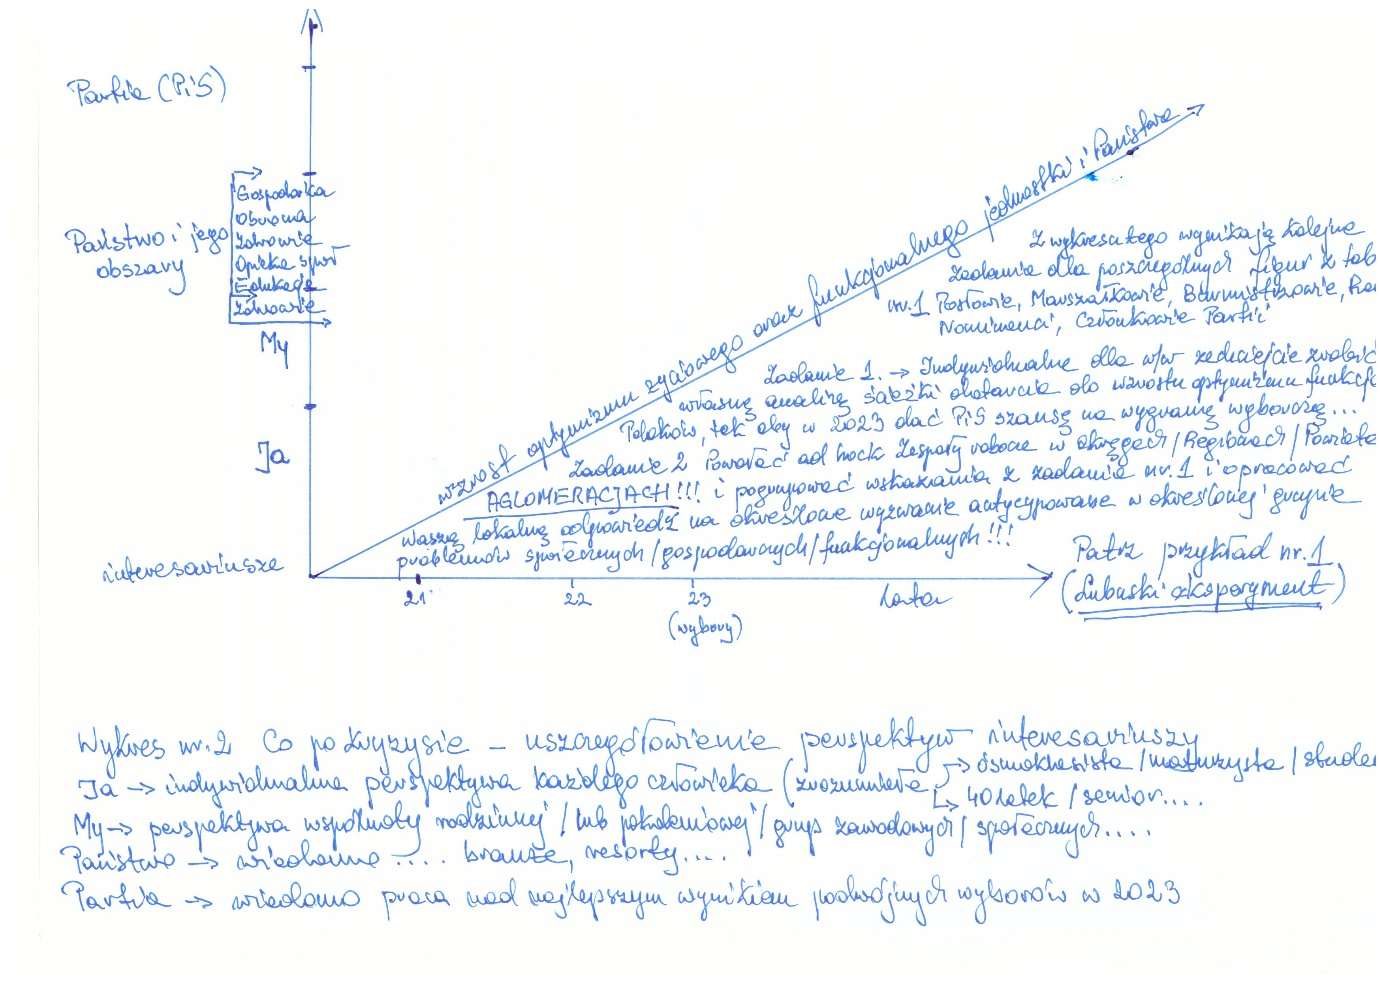 Partia (PiS)
Państwo i jego
obszary
Gospodarka
Obrona
Zdrowie
Opieka społ
Edukacja
Zdrowie
My
Ja
interesariusze
wzrost optymizmu życiowego oraz funkcjonalnego jednostki i Państwa
Z wykresu tego wynikają kolejne
zadania dla poszczególnych figur z tab
nr.1 Posłowie, Marszałkowie, Burmistrzowie,
Nominenci, Członkowie Partii
Zadanie 1. → Indywidualne dla w/w zechciejcie zrobić
własną analizę ścieżki dotarcia do wzrostu optymizmu funkcjo
Polaków, tak aby w 2023 dać PiS szansę na wygraną wyborczą...
Zadanie 2 Powołać ad hock Zespoły robocze w okręgach/Regionach/Powiata
AGLOMERACJACH!!! i pogrupować wskazania z zadania nr.1 i opracować
waszą lokalną odpowiedź na określone wyzwanie antycypowane w określonej grupie
problemów społecznych/gospodarczych/funkcjonalnych!!!
21 22 23 Lata
(wybory)
Patrz przykład nr.1
(Lubuski eksperyment)
Wykres nr.2 Co po kryzysie – uszczegółowienie perspektyw interesariuszy
Ja → indywidualna perspektywa każdego człowieka (zrozumiała → ósmoklasista/maturzysta/studen
↳ 40 latek/senior....
My → perspektywa wspólnoty rodzinnej/lub pokoleniowej/grup zawodowych/społecznych....
Państwo → wiadomo .... branże, resorty....
Partia → wiadomo praca nad najlepszym wynikiem podwójnych wyborów w 2023